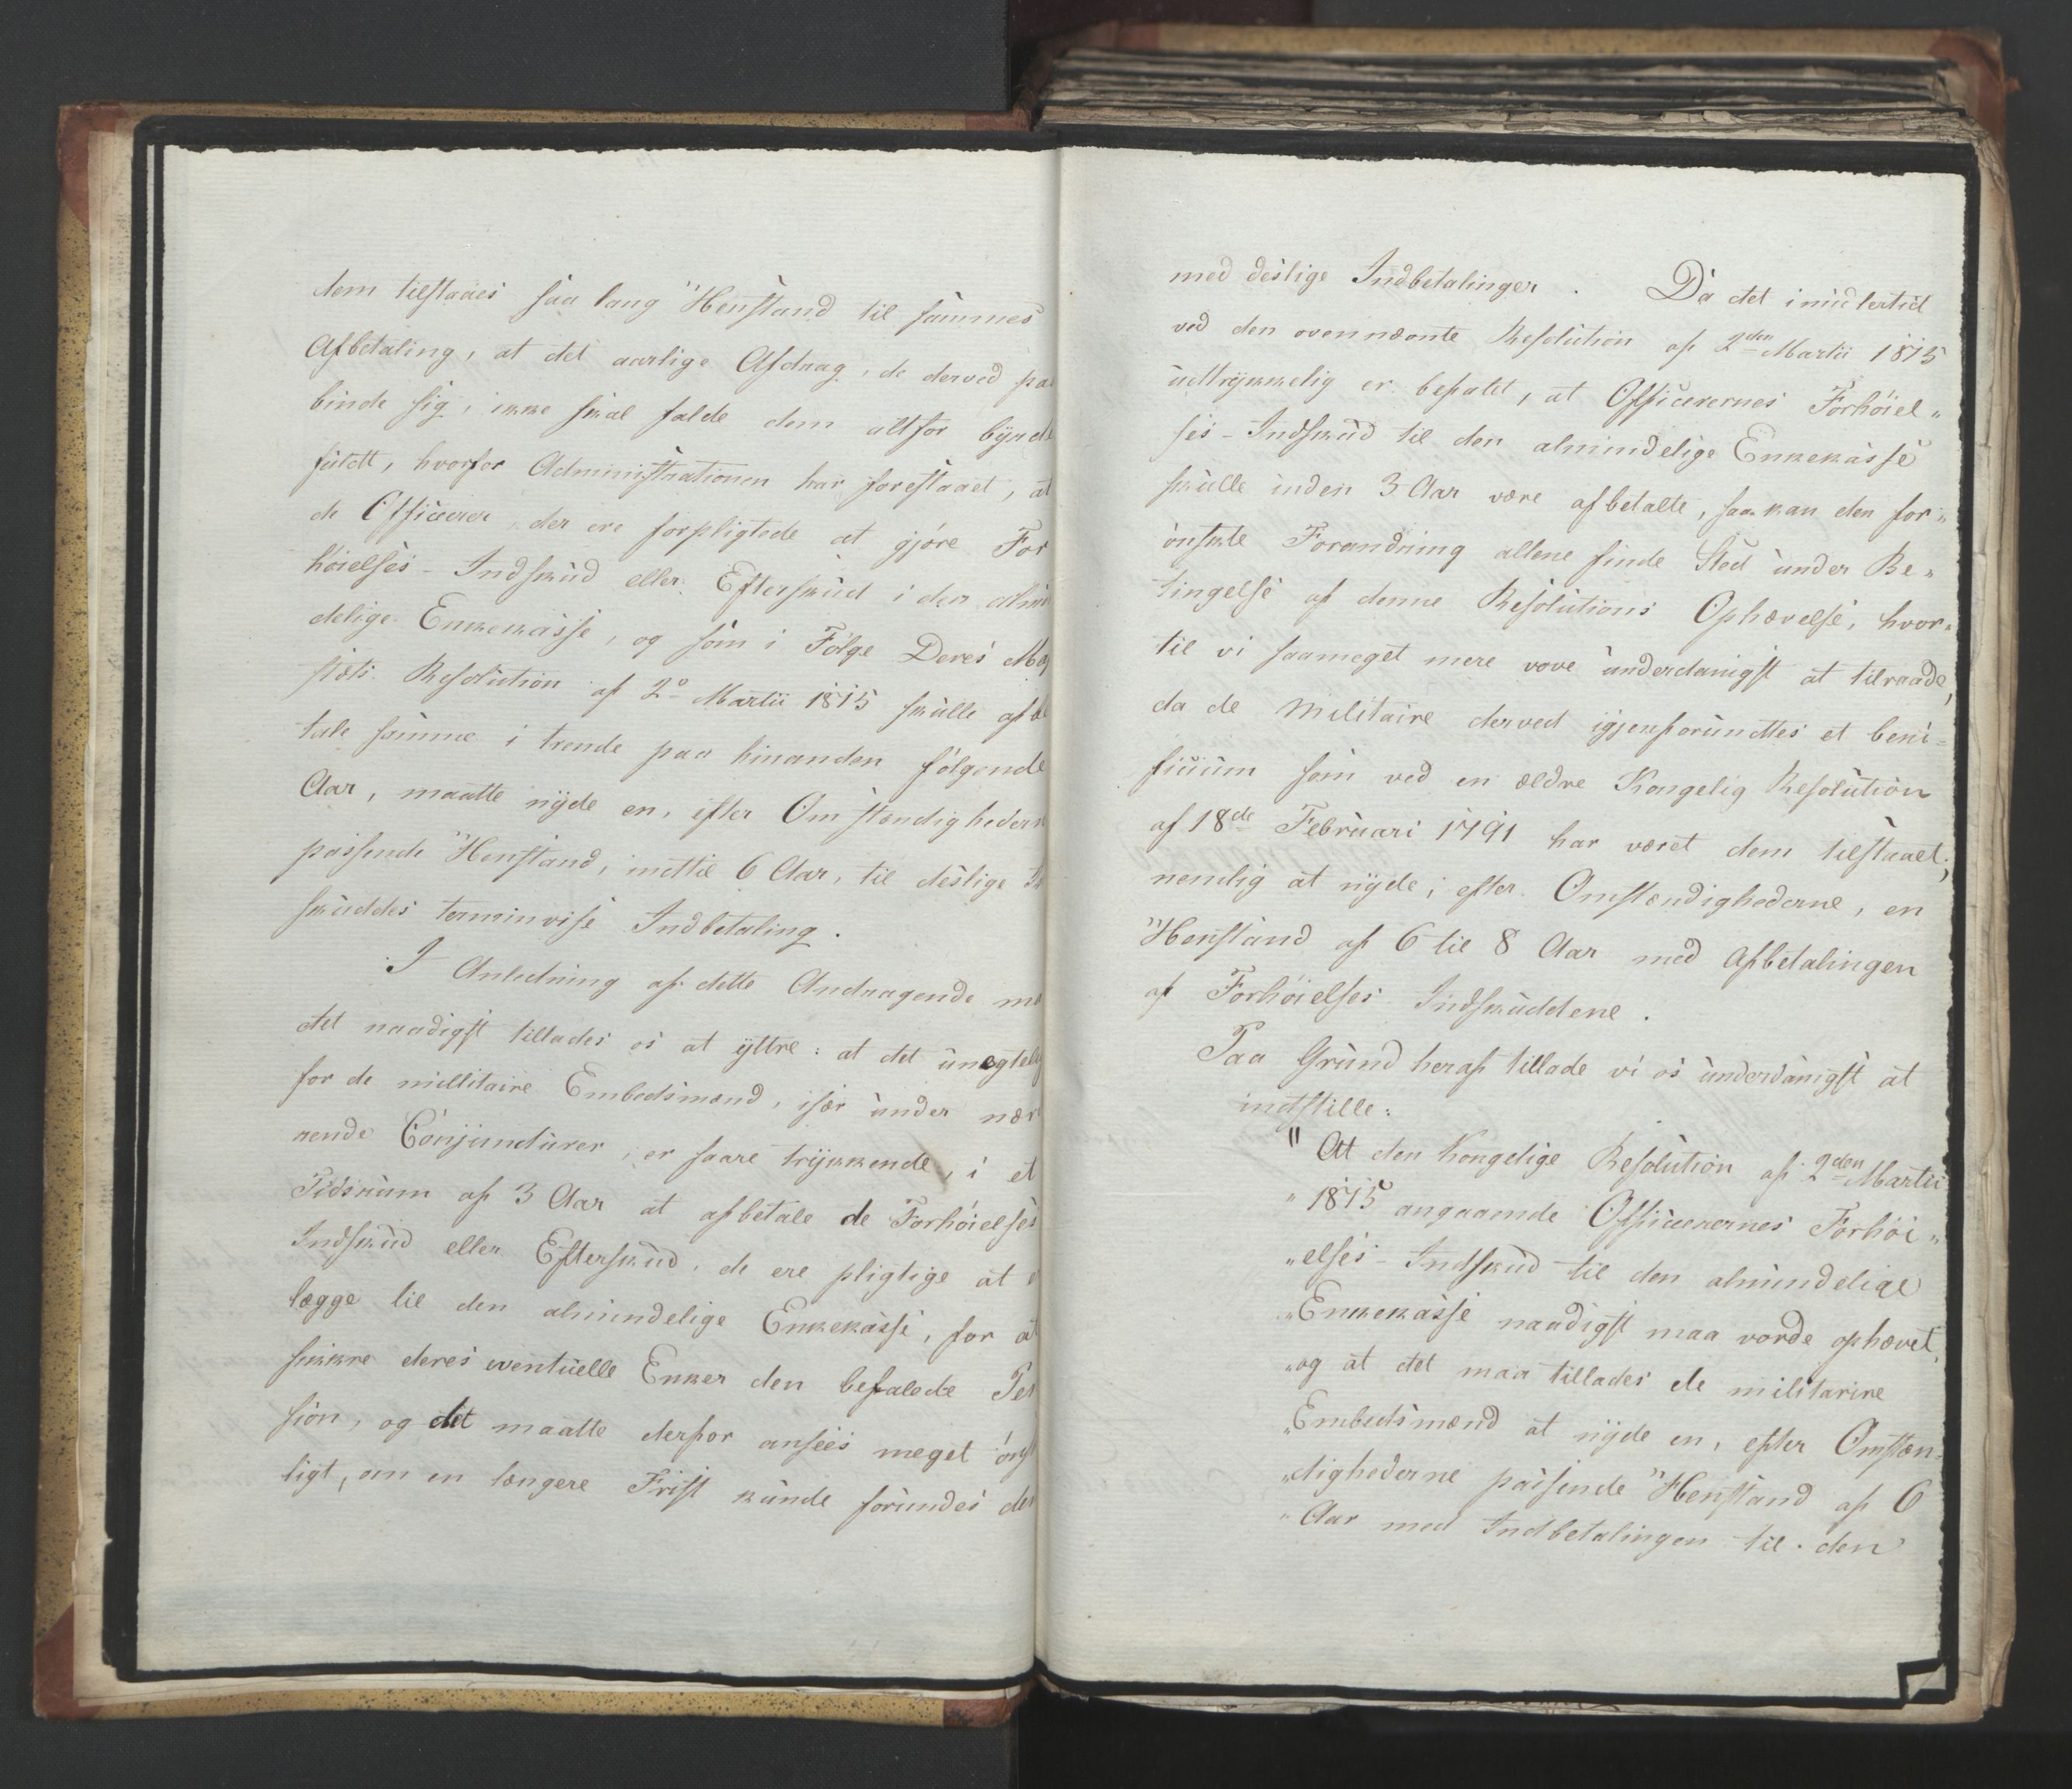 dem tilstaaes saa lang Henstand til sammes
Afbetaling, at det aarlige Afdrag, de derved for
binde sig, ikke skal falde dem altfor byrde
fuldt, hvorfor Administrationen har foreslaaet, at
de Officerer der ere forpligtede at gjøre For
høielses-Indskud eller Efterskud i den almin
delige Enkekasse, og som i Følge Deres Maj
stæts Resolution af 2o Martii 1815 skulle afbe
tale samme i trende paa hinanden følgende
Aar, maatte nyde en, efter Omstændighedern
passende Henstand, indtil 6 Aar, til deslige In
skuddes terminvise Indbetaling.
I Anledning af dette Andragende ma
det naadigst tillades os at yttre: at det unegtelig
for de millitaire Embedsmænd, især under nær
rende Conjuncturer, er saare trykkende, i et
Tidsrum af 3 Aar at afbetale de Forhøielses
Indskud eller Efterskud, de ere pligtige at e
lægge til den almindelige Enkekasse, for at
sikkre deres eventuelle Enker den befalede Pen
sion, og det maatte derfor ansees meget ønsk
ligt, om en længere Frist kunde forundes dem
med deslige Indbetalinger. Da det imidlertid
ved den ovennævnte Resolution af 2den Martii 1815
udtrykkelig er befalet, at Officerernes Forhøiel„
ses-Indskud til den almindelige Enkekasse
skulle inden 3 Aar være afbetalte, saa kan den for„
ønskte Forandring allene finde Sted under Be„
tingelse af denne Resolutions Ophævelse, hvor„
til vi saameget mere vove underdanigst at tilraade,
da de Militaire derved igjenforundtes et bene=
ficium som ved en ældre Kongelig Resolution
af 18de Februari 1791 har været dem tilstaaet,
nemlig at nyde, efter Omstændighederne, en
Henstand af 6 til 8 Aar med Afbetalingen
af Forhøielses Indskuddene.
Paa Grund heraf tillade vi os underdanigst at
indstille:
" At den Kongelige Resolution af 2den Martii
„ 1815 angaaende Officerernes Forhøi„
„elses-Indskud til den almindelige
„Enkekasse naadigst maa vorde ophævet,
„og at det maa tillades de militarire
„Embedsmænd at nyde en, efter Omstæn„
„dighederne passende Henstand af 6
„Aar med Indbetalingen til den